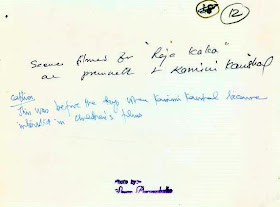 12
Scenes filmed for "Raja Kaka"
as Kamini Kaushal
Caption
This was before the days when Kamini Kaushal became
interested in children's films
Photo by:-